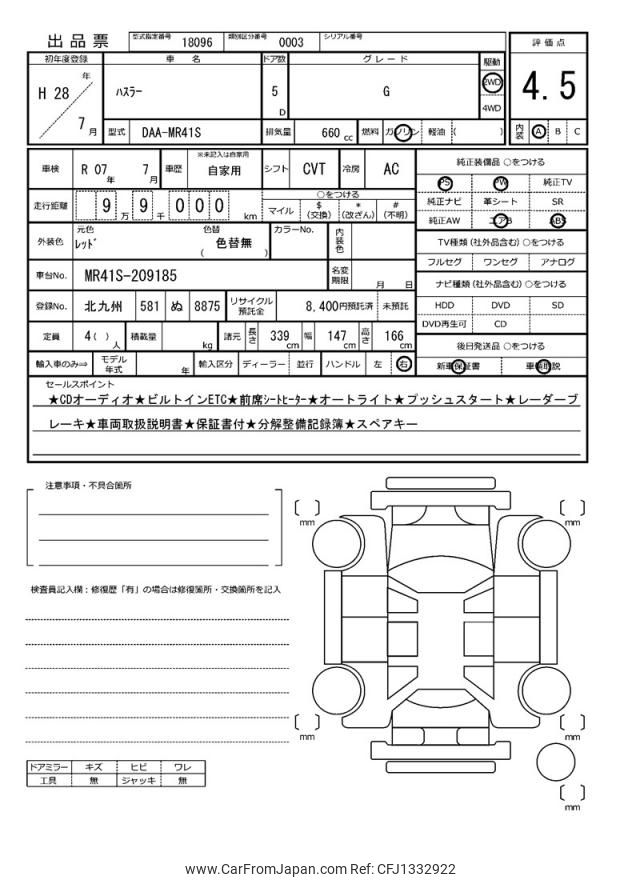 出品票 型式指定番号 18096 類別区分番号 0003 シリアル番号
評価点
4.5
内装 A B C
初年度登録 車名 ドア数 グレード 駆動
H 28 年 7 月 ハスラー 5 D G 2WD 4WD
型式 DAA-MR41S 排気量 660 cc 燃料 ガソリン 軽油 ( )
車検 R 07 年 7 月 車歴 ※未記入は自家用 自家用 シフト CVT 冷房 AC
走行距離 9 万 9 千 0 0 0 km ○をつける
マイル $ (交換) * (改ざん) # (不明)
外装色 元色 レッド 色替 ( 色替無 ) カラーNo. 内装色
車台No. MR41S-209185 名変期限 月 日
登録No. 北九州 581 ぬ 8875 リサイクル預託金 8,400円預託済 未預託
定員 4( ) 人 積載量 kg 諸元 長さ 339 cm 幅 147 cm 高さ 166 cm
輸入車のみ⇒ モデル年式 年 輸入区分 ディーラー 並行 ハンドル 左 右
純正装備品 ○をつける
PS PW 純正TV
純正ナビ 革シート SR
純正AW エアB ABS
TV種類(社外品含む) ○をつける
フルセグ ワンセグ アナログ
ナビ種類(社外品含む) ○をつける
HDD DVD SD
DVD再生可 CD
後日発送品 ○をつける
新車保証書 車輌取説
セールスポイント
★CDオーディオ★ビルトインETC★前席シートヒーター★オートライト★プッシュスタート★レーダーブ
レーキ★車両取扱説明書★保証書付★分解整備記録簿★スペアキー
注意事項・不具合箇所
検査員記入欄：修復歴「有」の場合は修復箇所・交換箇所を記入
ドアミラー キズ ヒビ ワレ
工具 無 ジャッキ 無
[ ] mm
[ ] mm
[ ] mm
[ ] mm
[ ] mm
www.CarFromJapan.com Ref: CFJ1332922